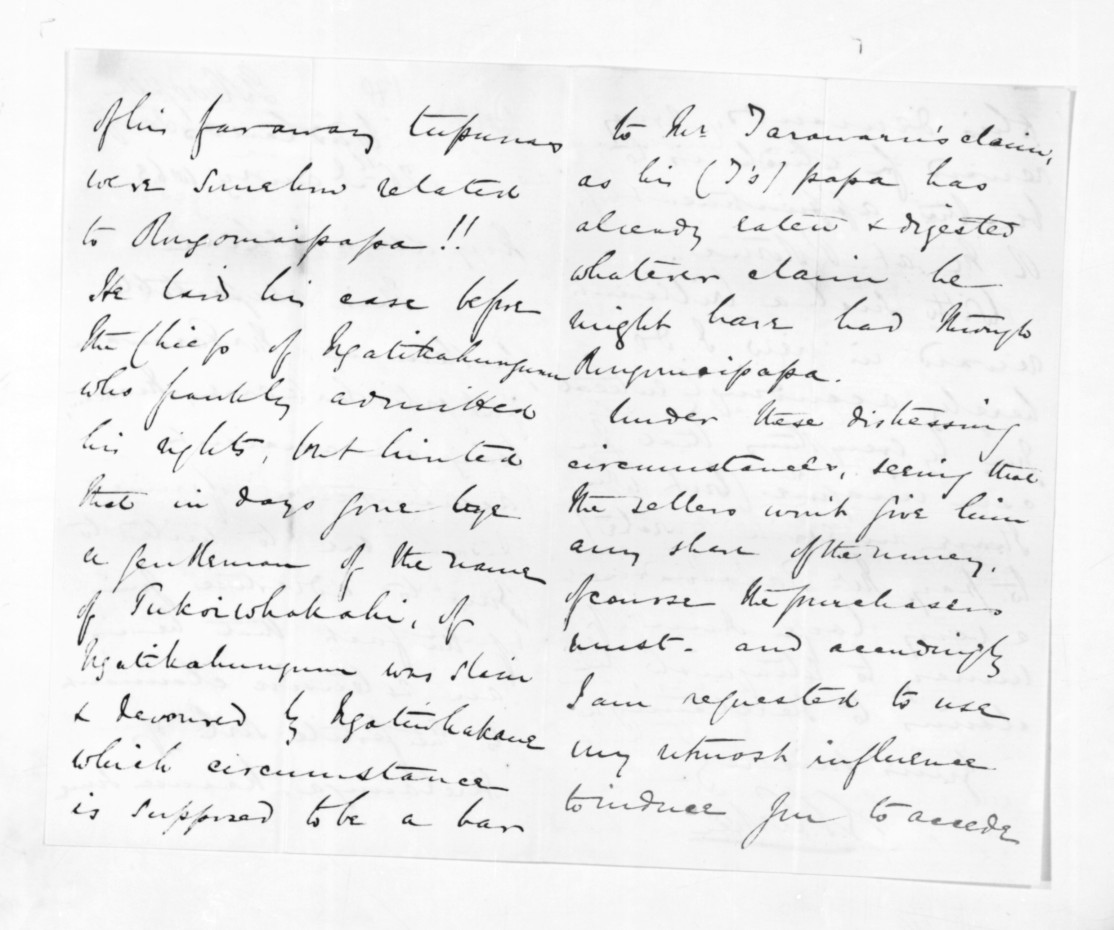 of his faraway tupunas
were somehow related
to Rugomaipapa!!
He laid his case before
the Chiefs of Ngatikahungunu
who frankly admitted
his rights, but hinted
that in days gone bye
a gentleman of the name
of Tukoiwhakahi, of
Ngatikahungunu was slain
& devoured by Ngatiwhakaue
which circumstance
is supposed to be a bar
to Mr Tarawari's claim,
as his (T's) papa has
already eaten & digested
whatever claim he
might have had through
Rugomaipapa.
Under these distressing
circumstances, seeing that
the sellers won't give him
any share of the money,
of course the purchasers
must - and accordingly
I am requested to use
my utmost influence
to induce you to accede